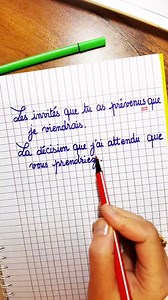 Les invités que tu as prévenus que
je viendrais.
La décision que j'ai attendu que
vous prendriez